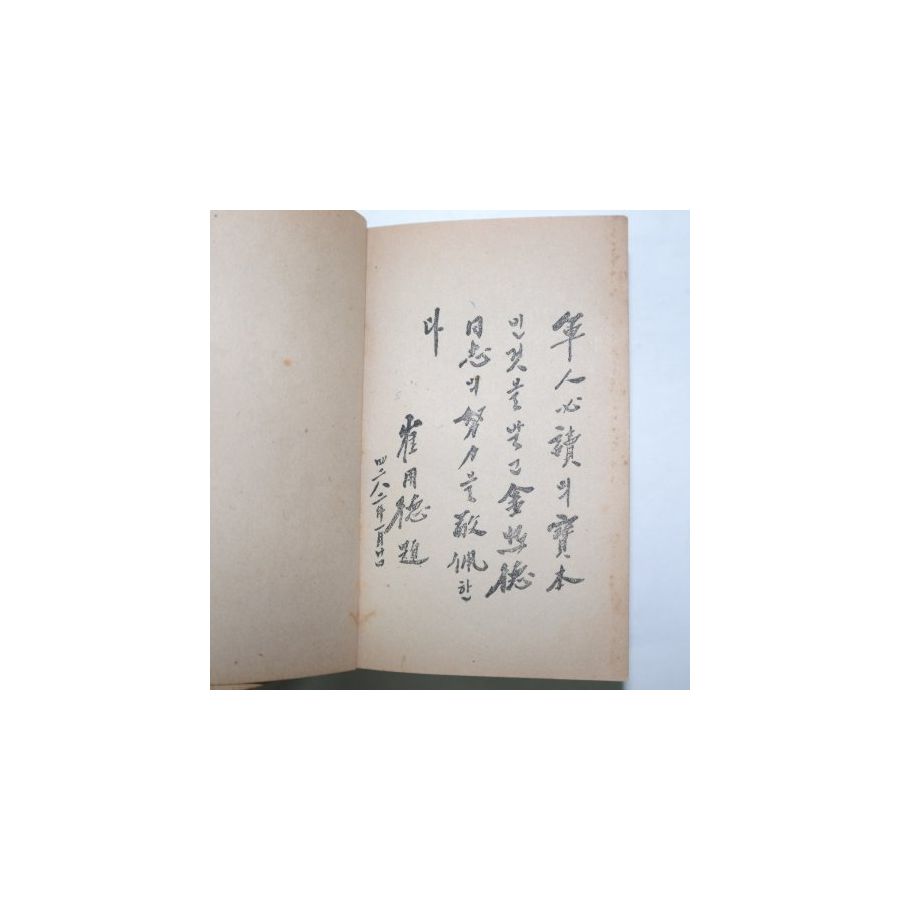 軍人必讀의寶本
인것을말고金照德
同志의努力을敬佩한
다
崔用德題
四二八二年一月